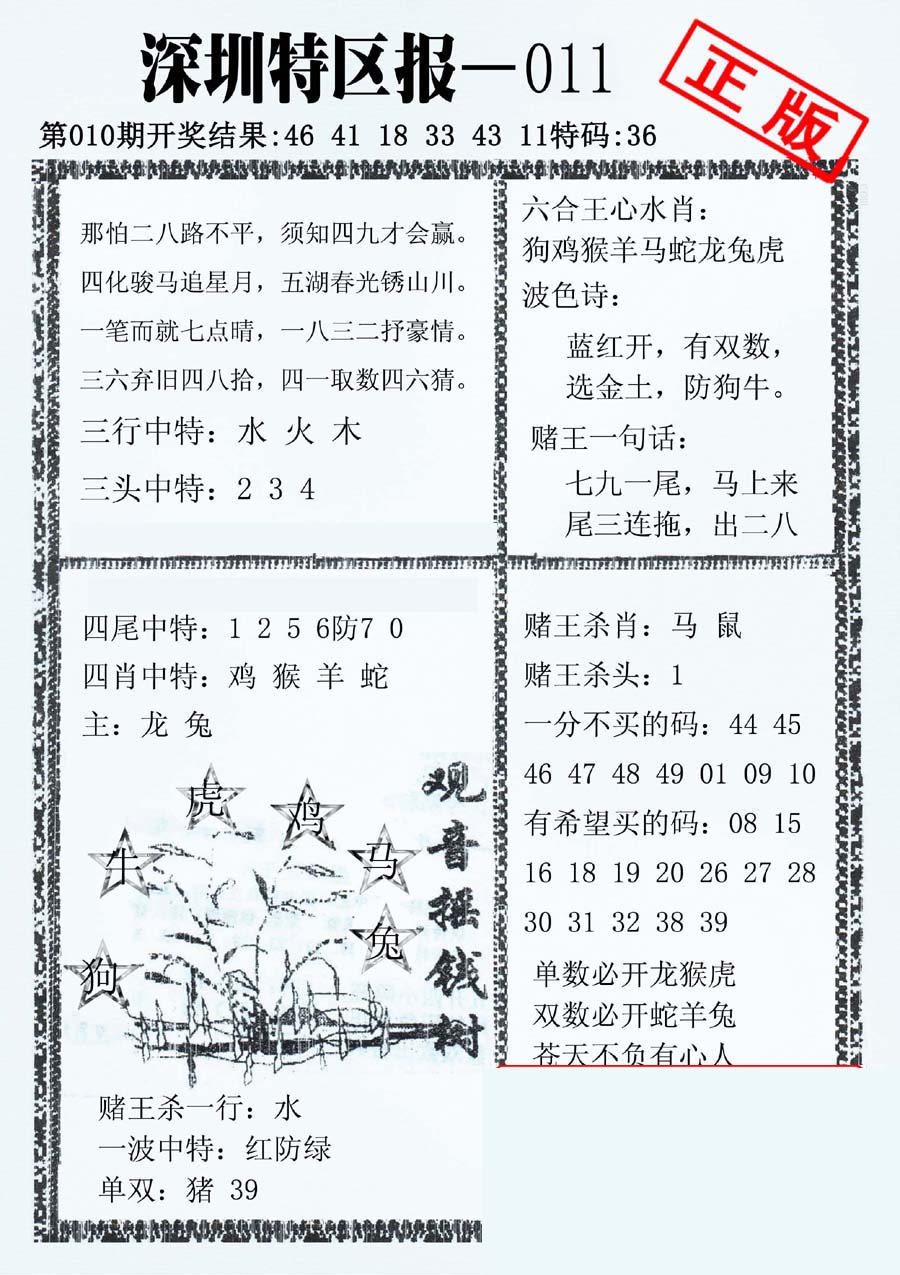 深圳特区报—011
正版
第010期开奖结果:46 41 18 33 43 11特码:36
那怕二八路不平，须知四九才会赢。
四化骏马追星月，五湖春光锈山川。
一笔而就七点晴，一八三二抒豪情。
三六弃旧四八拾，四一取数四六猜。
三行中特：水 火 木
三头中特：2 3 4
六合王心水肖：
狗鸡猴羊马蛇龙兔虎
波色诗：
蓝红开，有双数，
选金土，防狗牛。
赌王一句话：
七九一尾，马上来
尾三连拖，出二八
四尾中特：1 2 5 6防7 0
四肖中特：鸡 猴 羊 蛇
主：龙 兔
虎
鸡
牛
马
兔
狗
观音摇钱树
赌王杀一行：水
一波中特：红防绿
单双：猪 39
赌王杀肖：马 鼠
赌王杀头：1
一分不买的码：44 45
46 47 48 49 01 09 10
有希望买的码：08 15
16 18 19 20 26 27 28
30 31 32 38 39
单数必开龙猴虎
双数必开蛇羊兔
苍天不负有心人